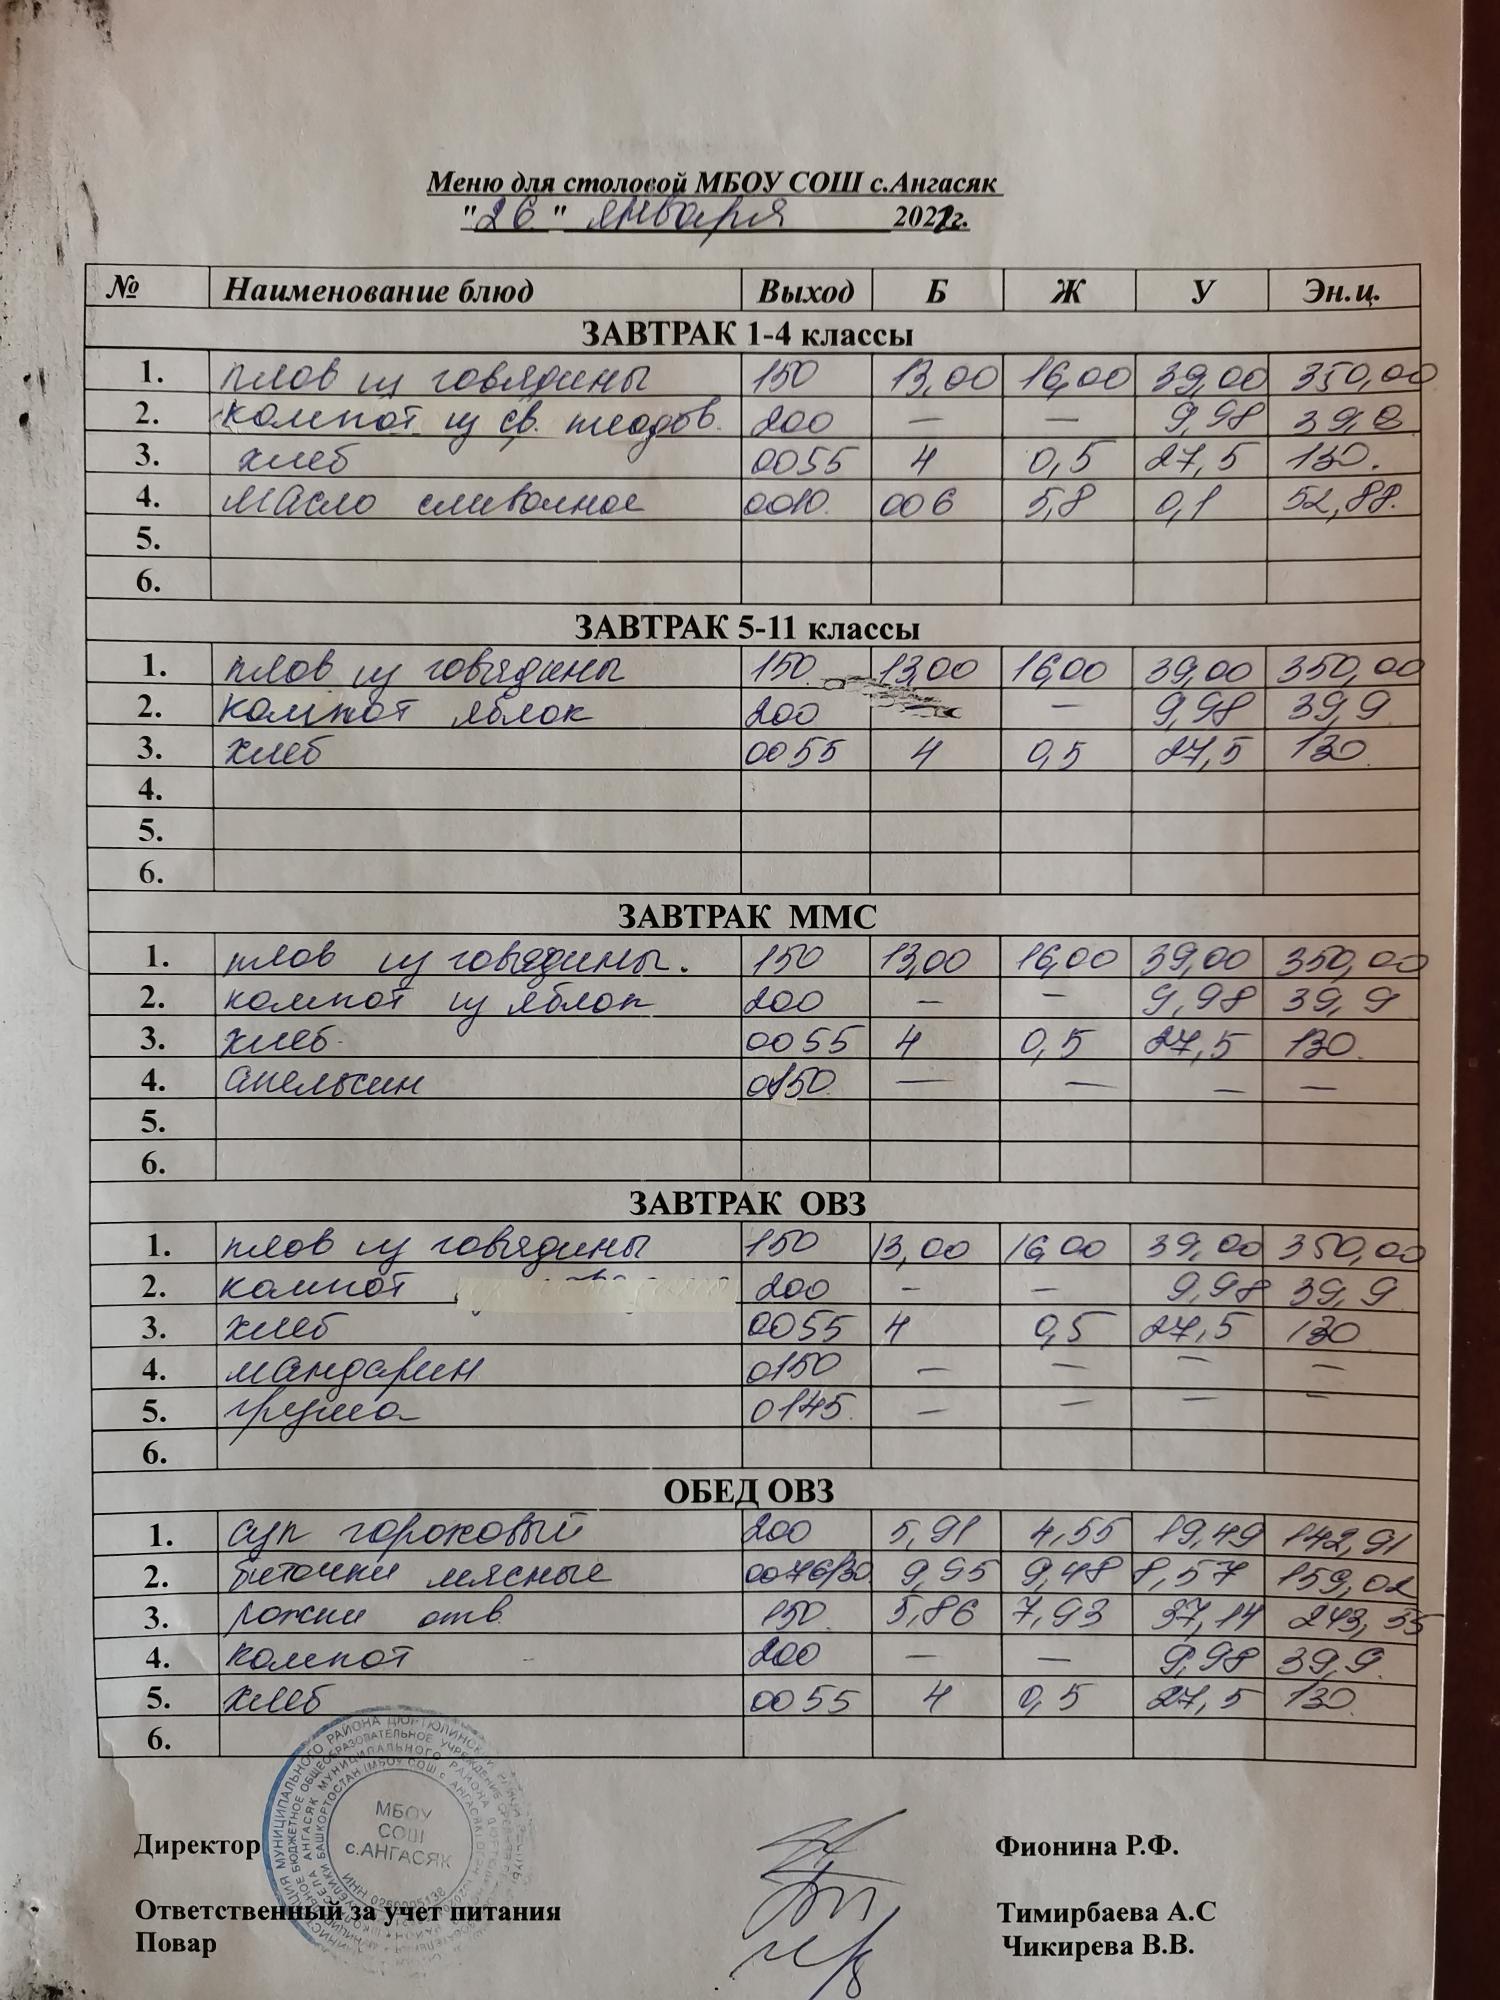 Меню для столовой МБОУ СОШ с.Ангасяк
"26" января 2022г.
№ Наименование блюд Выход Б Ж У Эн.ц.
ЗАВТРАК 1-4 классы
1. плов из говядины 150 13,00 16,00 39,00 350,00
2. компот из св. плодов. 200 — — 9,98 39,9
3. хлеб 0055 4 0,5 27,5 130.
4. масло сливочное 0010. 006 5,8 0,1 52,88.
5.
6.
ЗАВТРАК 5-11 классы
1. плов из говядины 150 13,00 16,00 39,00 350,00
2. компот яблок 200 — 9,98 39,9
3. хлеб 0055 4 0,5 27,5 130
4.
5.
6.
ЗАВТРАК ММС
1. плов из говядины. 150 13,00 16,00 39,00 350,00
2. компот из яблок 200 — — 9,98 39,9
3. хлеб 0055 4 0,5 27,5 130.
4. апельсин 0150 — — — —
5.
6.
ЗАВТРАК ОВЗ
1. плов из говядины 150 13,00 16,00 39,00 350,00
2. компот 200 — — 9,98 39,9
3. хлеб 0055 4 0,5 27,5 130
4. мандарин 0150 — — — —
5. груша 0145 — — — —
6.
ОБЕД ОВЗ
1. суп гороховый 200 5,91 4,55 19,49 142,91
2. биточки мясные 9,95 9,48 8,57 159,02
3. рожки отв 150 5,86 7,93 37,14 243,55
4. компот 200 — — 9,98 39,9.
5. хлеб 0055 4 0,5 27,5 130
6.
МБОУ
СОШ
с.АНГАСЯК
Директор Фионина Р.Ф.
Ответственный за учет питания Тимирбаева А.С
Повар Чикирева В.В.